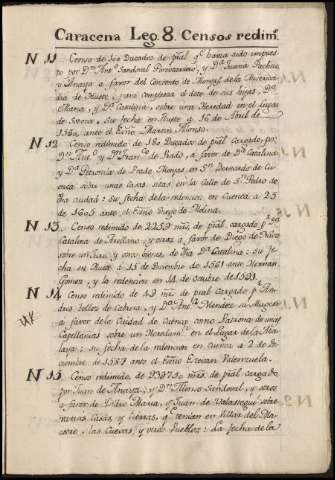 Caracena Leg. 8. Censos redim.
N 11 Censo de 300 Ducados de pñal q.e havia sido impues
to por D.n Ant.o Sandoval Portocarrero, y D.a Juana Pacheco
y Anaya a favor del Convento de Monjas de la Misericor
dia de Huete, para completar el dote de sus hijas, D.a
Maria, y D.a Casilda, sobre una Heredad en el lugar
de su fecha en Huete a 16 de Abril de
ante el Esno Martin Alonso.
N 12 Censo redimido de 180 Ducados de pñal cargado, por
D.n Ant.o y D.n Fran.co de Prado, a favor de D.a Catalina
y D.a Petronila de Prado Monjas en S.n Bernardo de Cu
enca sobre unas casas sitas en la Calle de S.n Pedro de
dha ciudad: su fecha de la redencion en Cuenca a 25
de 1605 ante el Esno Diego de Molina.
N 13 Censo redimido de 2253 mrs, de pñal cargado p.r
Catalina de Arellano, y otros a favor de Diego de
sobre un Juro y otros bienes de dha D.a Catalina: su fe
cha en Huete a 15 de Diciembre de 1561 ante Hernan
Gomez, y la redencion en 14 de octubre de 1591.
N 14 Censo redimido de mrs de pñal cargado p.r
Tellez de Cabrera, y D.a Ana Mendez su Muger
a favor de la Ciudad de Cuenca como Patrona de unas
Capellanias sobre un Heredam.to en el lugar de la
su fecha de la redencion en Cuenca a 2 de Di
ciembre de 1587 ante el Esno Estevan Valenzuela.
N 15 Censo redimido, de mrs de pñal cargado
por Juan de Anaya, y D.n Alonso Sandoval, y otros
a favor de Pedro Maria, y Juan de Valasteguy sobre
varias Casas, y tierras, q.e tenian en Villar del Ma
estre, las Cuevas, y otros Pueblos: La fecha de la